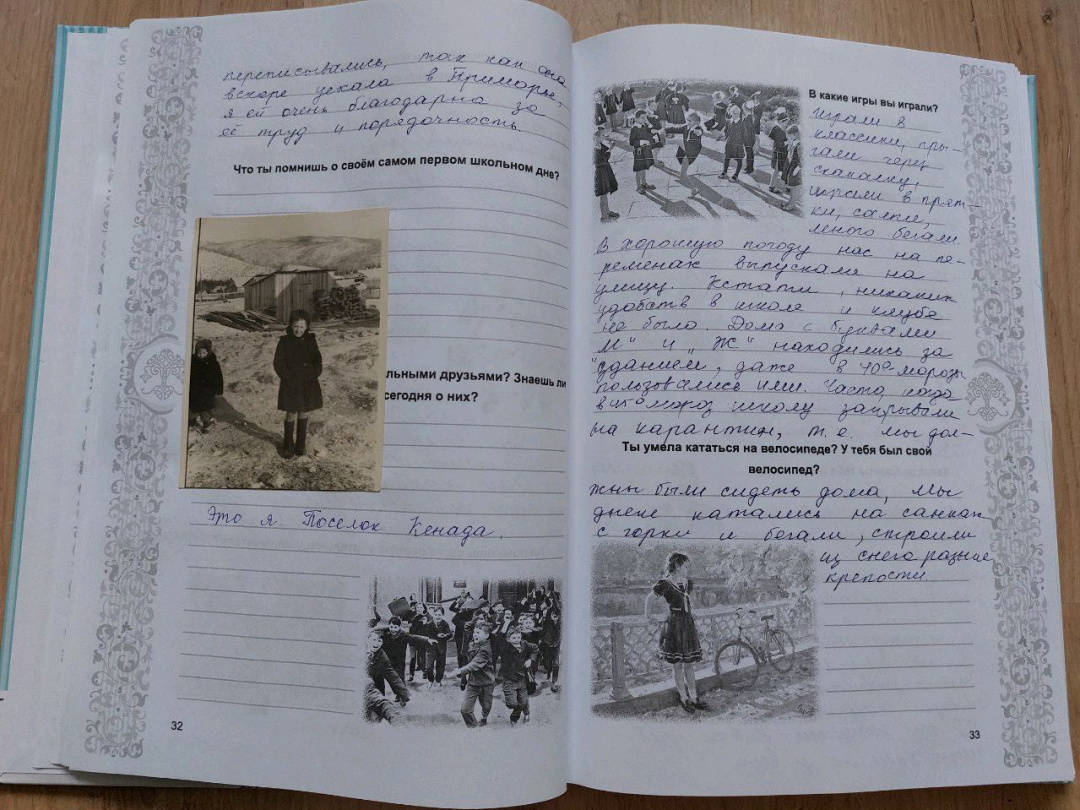 переписывались, так как она
вскоре уехала в Приморье,
я ей очень благодарна за
её труд и порядочность.
Что ты помнишь о своём самом первом школьном дне?
льными друзьями? Знаешь ли
сегодня о них?
Это я. Поселок Кенада.
32
В какие игры вы играли?
Играли в
классики, пры-
гали через
скакалку,
играли в прят-
ки, салки,
много бегали.
В хорошую погоду нас на пе-
ременах выпускали на
улицу. Кстати, никаких
удобств в школе и клубе
не было. Дома с буквами
"М" и "Ж" находились за
зданием, даже в 40° морозы
пользовались ими. Часто, когда
мороз школу закрывали
на карантин, т.е. мы дол-
Ты умела кататься на велосипеде? У тебя был свой
велосипед?
жны были сидеть дома, мы
днем катались на санках
с горки и бегали, строили
из снега разные
крепости.
33